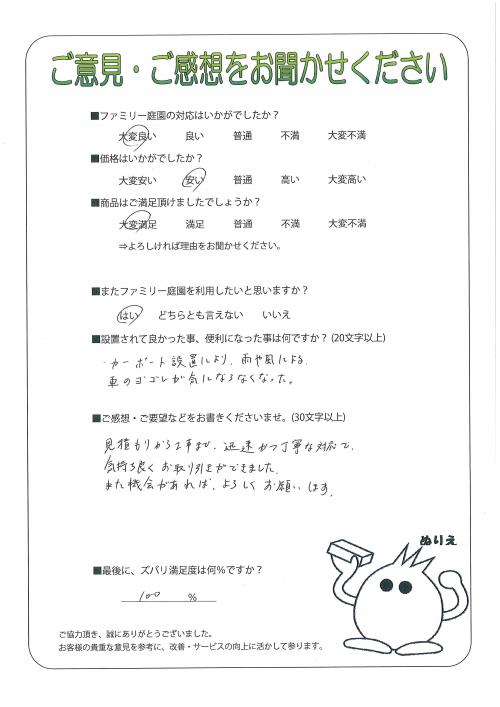 ご意見・ご感想をお聞かせください
■ファミリー庭園の対応はいかがでしたか？
大変良い　良い　普通　不満　大変不満
■価格はいかがでしたか？
大変安い　安い　普通　高い　大変高い
■商品はご満足頂けましたでしょうか？
大変満足　満足　普通　不満　大変不満
⇒よろしければ理由をお聞かせください。
■またファミリー庭園を利用したいと思いますか？
はい　どちらとも言えない　いいえ
■設置されて良かった事、便利になった事は何ですか？(20文字以上)
・カーポート設置により、雨や風による
車のヨゴレが気にならなくなった。
■ご感想・ご要望などをお書きくださいませ。(30文字以上)
見積もりから工事まで、迅速かつ丁寧な対応で、
気持ち良くお取り引きができました。
また機会があれば、よろしくお願いします。
ぬりえ
■最後に、ズバリ満足度は何％ですか？
100 ％
ご協力頂き、誠にありがとうございました。
お客様の貴重な意見を参考に、改善・サービスの向上に活かして参ります。